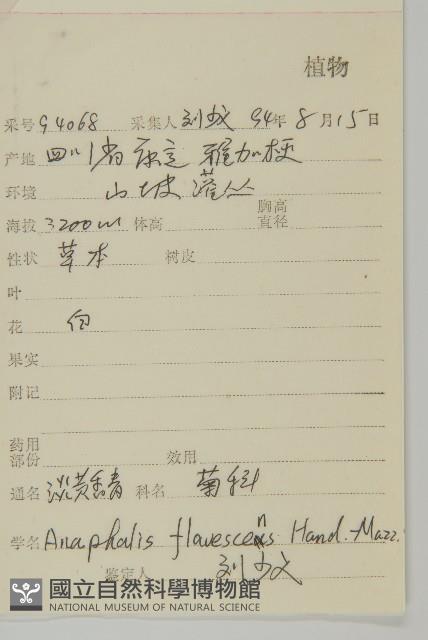 植物
采号 94068 采集人 刘 94年 8月15日
产地 四川省 康定 雅加梗
环境 山坡 灌丛 胸高直径
海拔 3200m 体高
性状 草本 树皮
叶
花 白
果实
附记
药用部份 效用
通名 淡黄香青 科名 菊科
学名 Anaphalis flavescens Hand.-Mazz.
鉴定人 刘
國立自然科學博物館
NATIONAL MUSEUM OF NATURAL SCIENCE